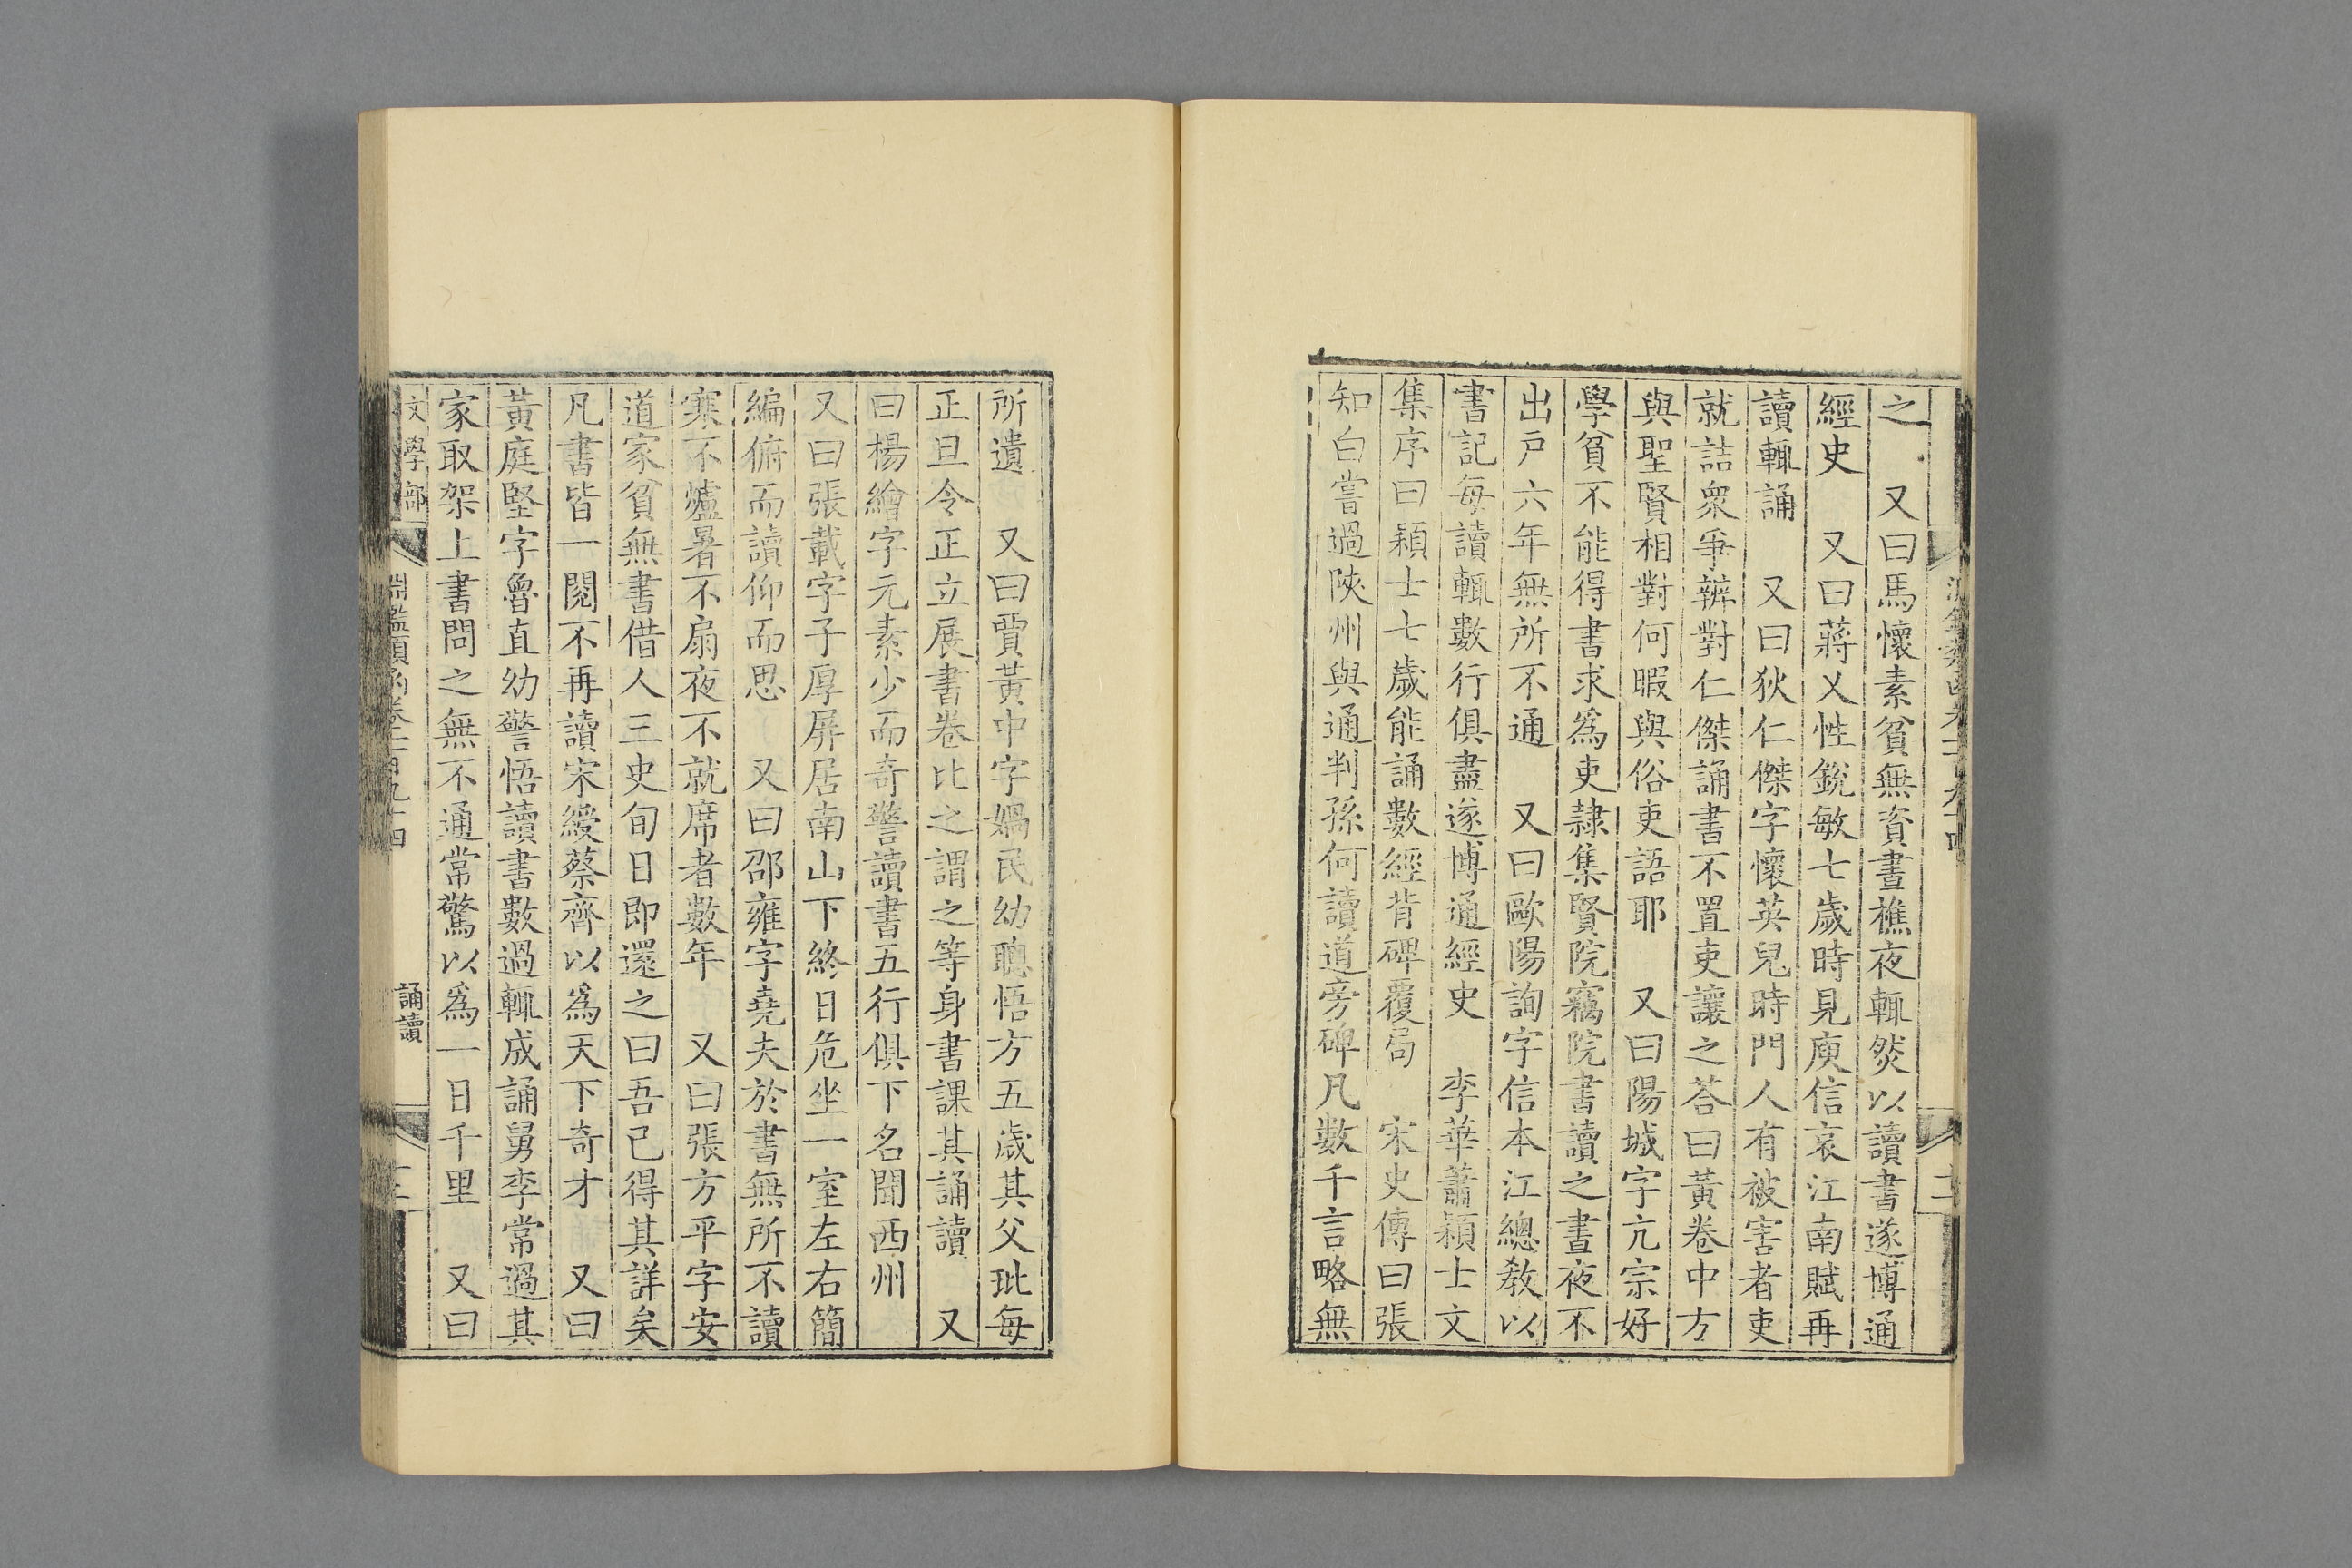 之 又曰馬懷素貧無資晝樵夜輒燃以讀書遂博通
經史 又曰蔣乂性銳敏七歲時見庾信哀江南賦再
讀輒誦 又曰狄仁傑字懷英兒時門人有被害者吏
就詰衆爭辨對仁傑誦書不置吏讓之荅曰黃卷中方
與聖賢相對何暇與俗吏語耶 又曰陽城字亢宗好
學貧不能得書求爲吏隸集賢院竊院書讀之晝夜不
出戸六年無所不通 又曰歐陽詢字信本江總敎以
書記每讀輒數行俱盡遂博通經史 李華蕭穎士文
集序曰穎士七歲能誦數經背碑覆局 宋史傳曰張
知白嘗過陝州與通判孫何讀道旁碑凡數千言略無
所遺 又曰賈黃中字媧民幼聰悟方五歲其父玭每
正旦令正立展書卷比之謂之等身書課其誦讀 又
曰楊繪字元素少而奇警讀書五行俱下名聞西州
又曰張載字子厚屏居南山下終日危坐一室左右簡
編俯而讀仰而思 又曰邵雍字堯夫於書無所不讀
寒不爐暑不扇夜不就席者數年 又曰張方平字安
道家貧無書借人三史旬日即還之曰吾已得其詳矣
凡書皆一閱不再讀宋綬蔡齊以爲天下奇才 又曰
黃庭堅字魯直幼警悟讀書數過輒成誦舅李常過其
家取架上書問之無不通常驚以爲一日千里 又曰
文學部 淵鑑類函卷二百九十四 誦讀